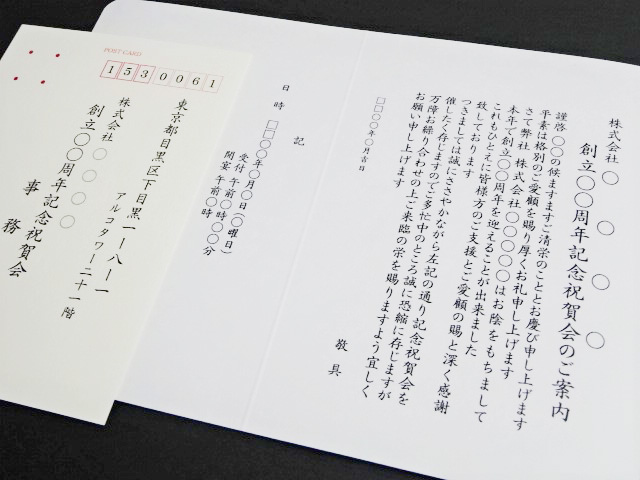 株式会社 ○ ○ ○ ○
創立○○周年記念祝賀会のご案内
謹啓 ○○の候ますますご清栄のこととお慶び申し上げます
平素は格別のご愛顧を賜り厚くお礼申し上げます
さて弊社 株式会社○○○○○はお陰をもちまして
本年で創立○○周年を迎えることが出来ました
これもひとえに皆様方のご支援とご愛顧の賜と深く感謝
致しております
つきましては誠にささやかながら左記の通り記念祝賀会を
催したく存じますのでご多忙中のところ誠に恐縮に存じますが
万障お繰り合わせの上ご来臨の栄を賜りますよう宜しく
お願い申し上げます
敬具
□□○○年○月吉日
記
日 時 □□○○年○月○日(○曜日)
受付 午前○時○○分
開宴 午前○時○○分
POST CARD
1530061
東京都目黒区下目黒一ー八ー一
アルコタワー二十一階
株式会社 ○ ○ ○ ○
創立○○周年記念祝賀会
事 務